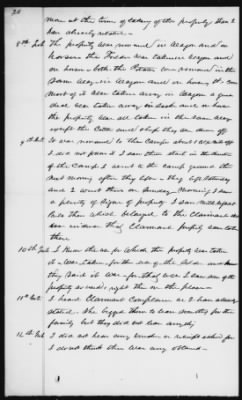 20
man at the time of taking of the property than I
have already stated —
8th Int The property was removed in wagon and on
horses the Fodder was taken in wagon and
on horse — both. The Potatoes were removed in the
same way in wagon and on horse, it
most of it was taken away in wagon a good
deal was taken away in sack and on horse
the property was all taken in the same way
except the Cattle and they drove off
9th Int It was removed to the Camps about
I did not follow it I saw them start in the direction
of the Camps I went to the camp ground the
next morning after they left — they left Saturday
and I went there on Sunday morning I saw
a plenty of signs of property I saw
there which belonged to the claimant
that Claimants property was taken
there
10th Int I know the use for which the property was taken
it was taken for the use of the Soldiers
they said it was for that use I saw some of the
property used, right there on the place —
11th Int I heard Claimant Complain as I have already
stated. She begged them to leave something for the
family but they did not leave any
12th Int I did not hear any voucher or receipt asked for
I do not think there was any offered —